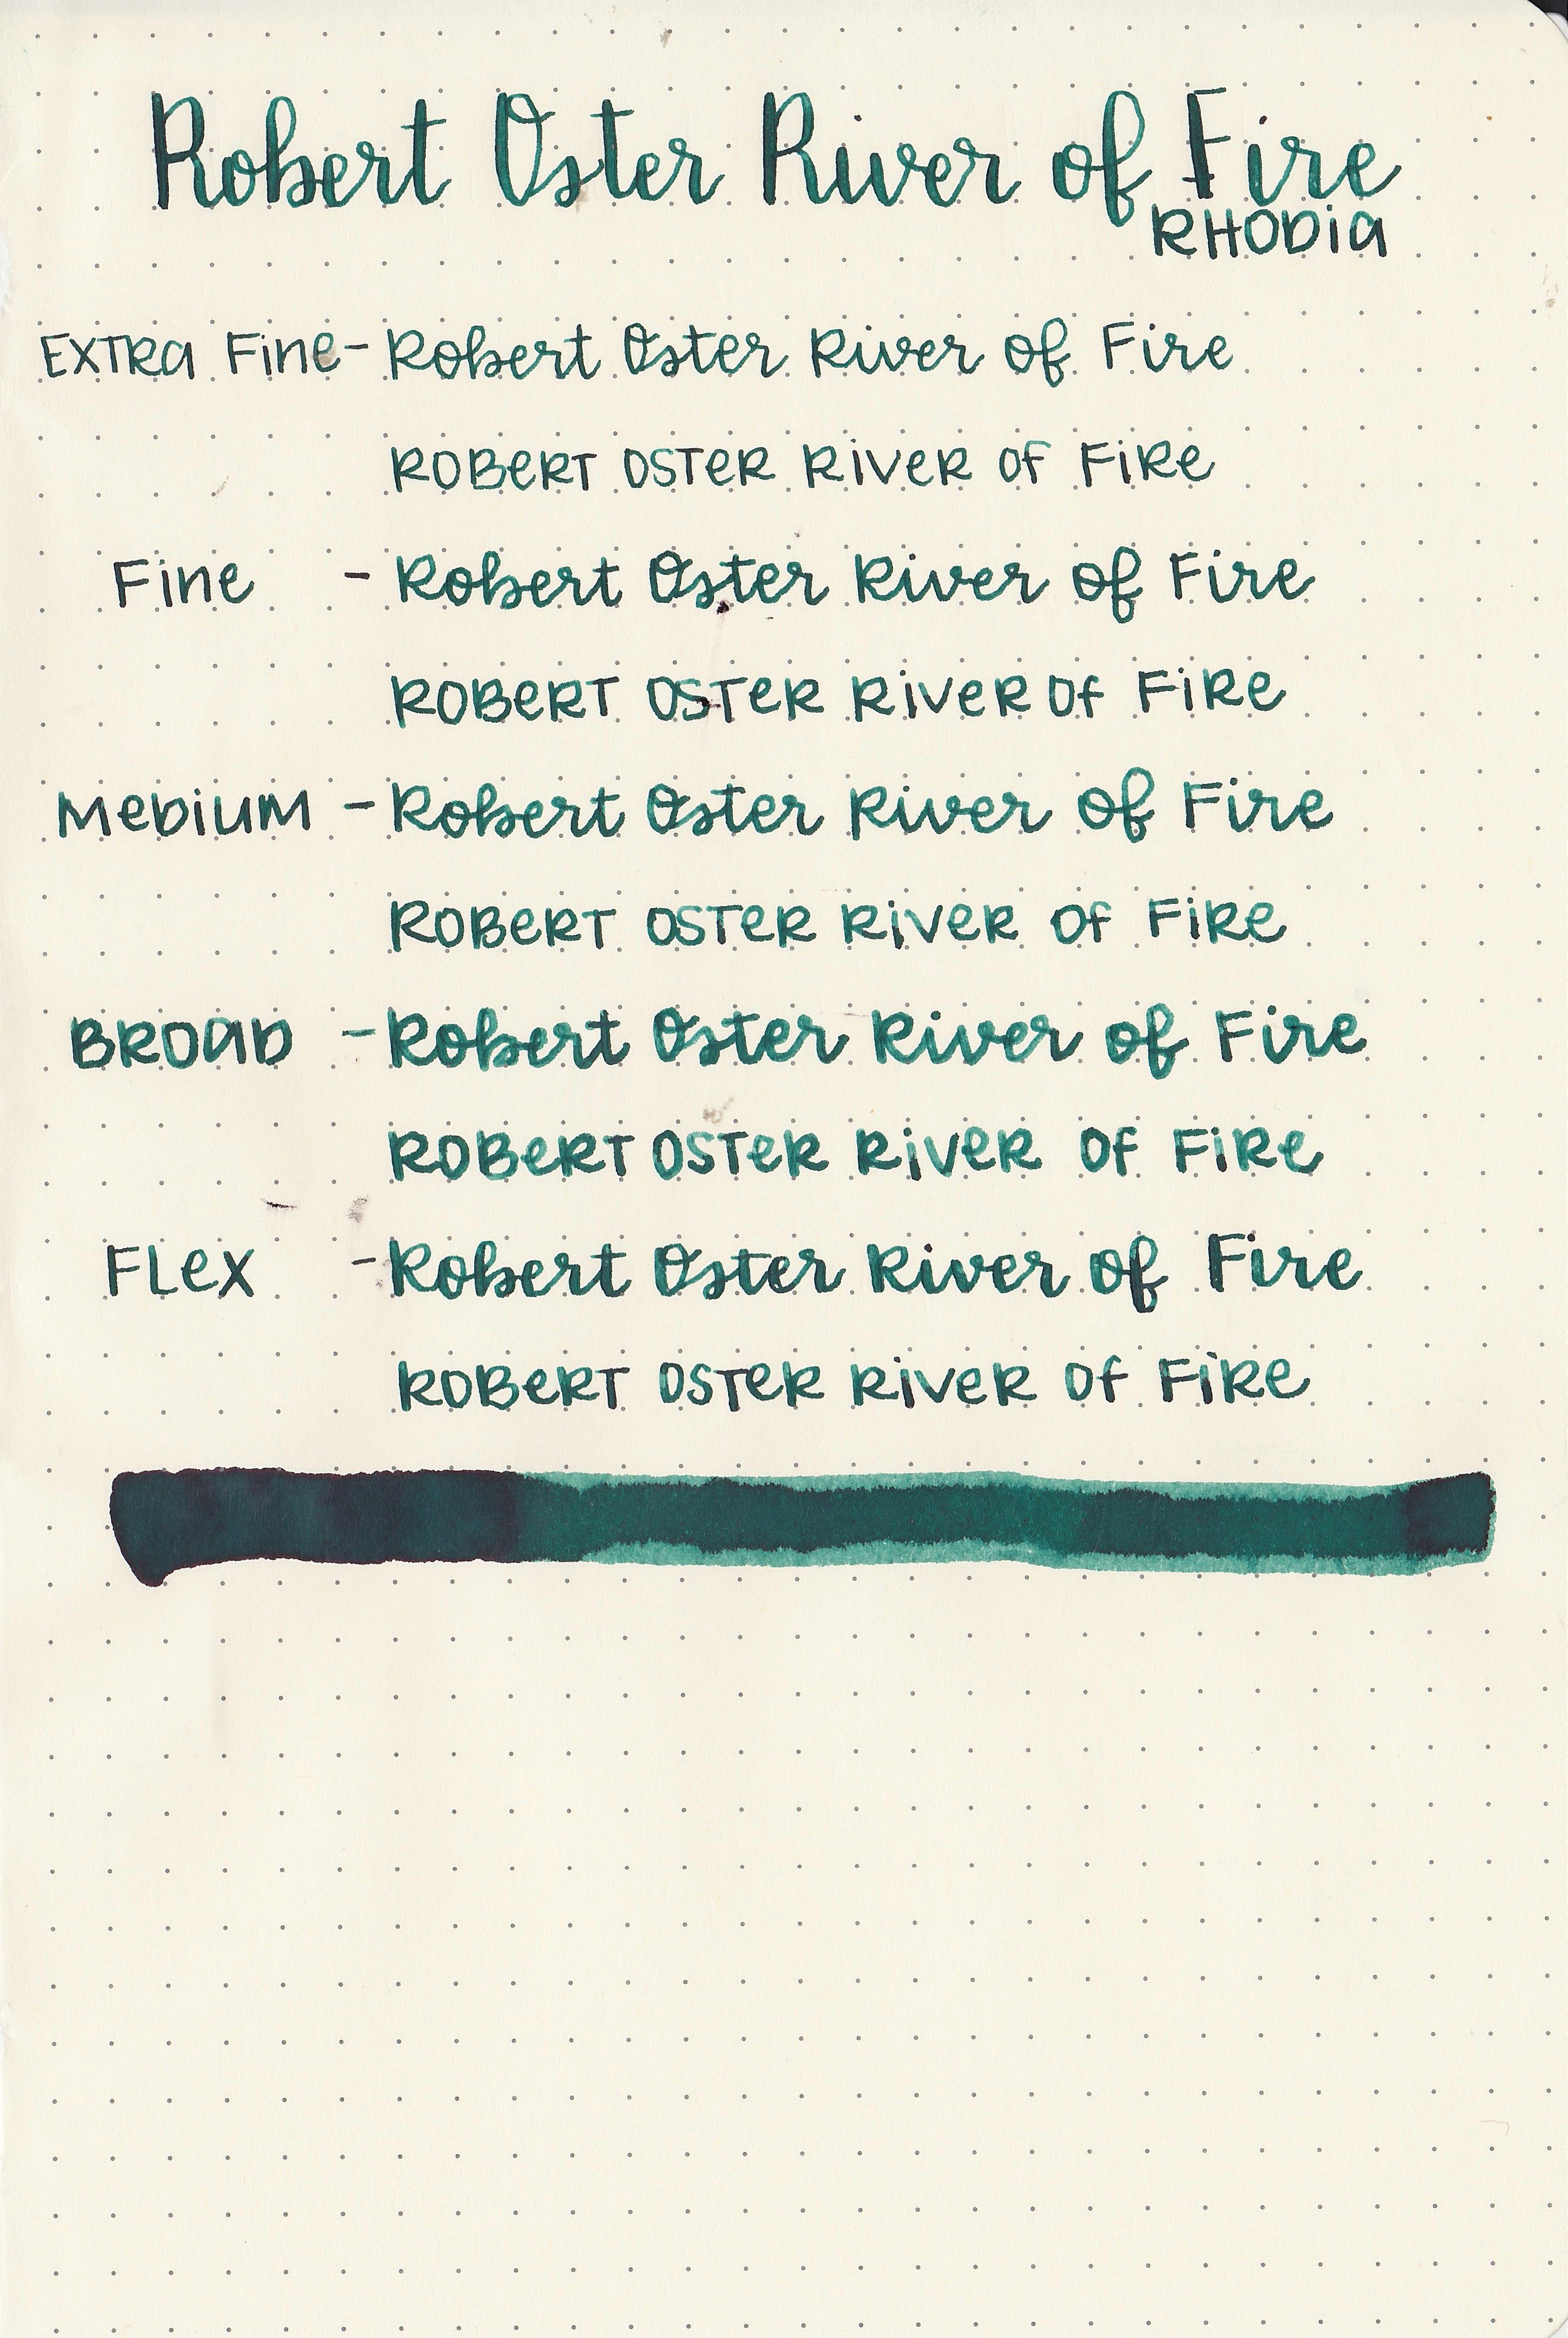 Robert Oster River of Fire
RHODIA
EXTRA FINE - Robert Oster River of Fire
ROBERT OSTER RIVER OF FIRE
FINE - Robert Oster River of Fire
ROBERT OSTER RIVER OF FIRE
MEDIUM - Robert Oster River of Fire
ROBERT OSTER RIVER OF FIRE
BROAD - Robert Oster River of Fire
ROBERT OSTER RIVER OF FIRE
FLEX - Robert Oster River of Fire
ROBERT OSTER RIVER OF FIRE